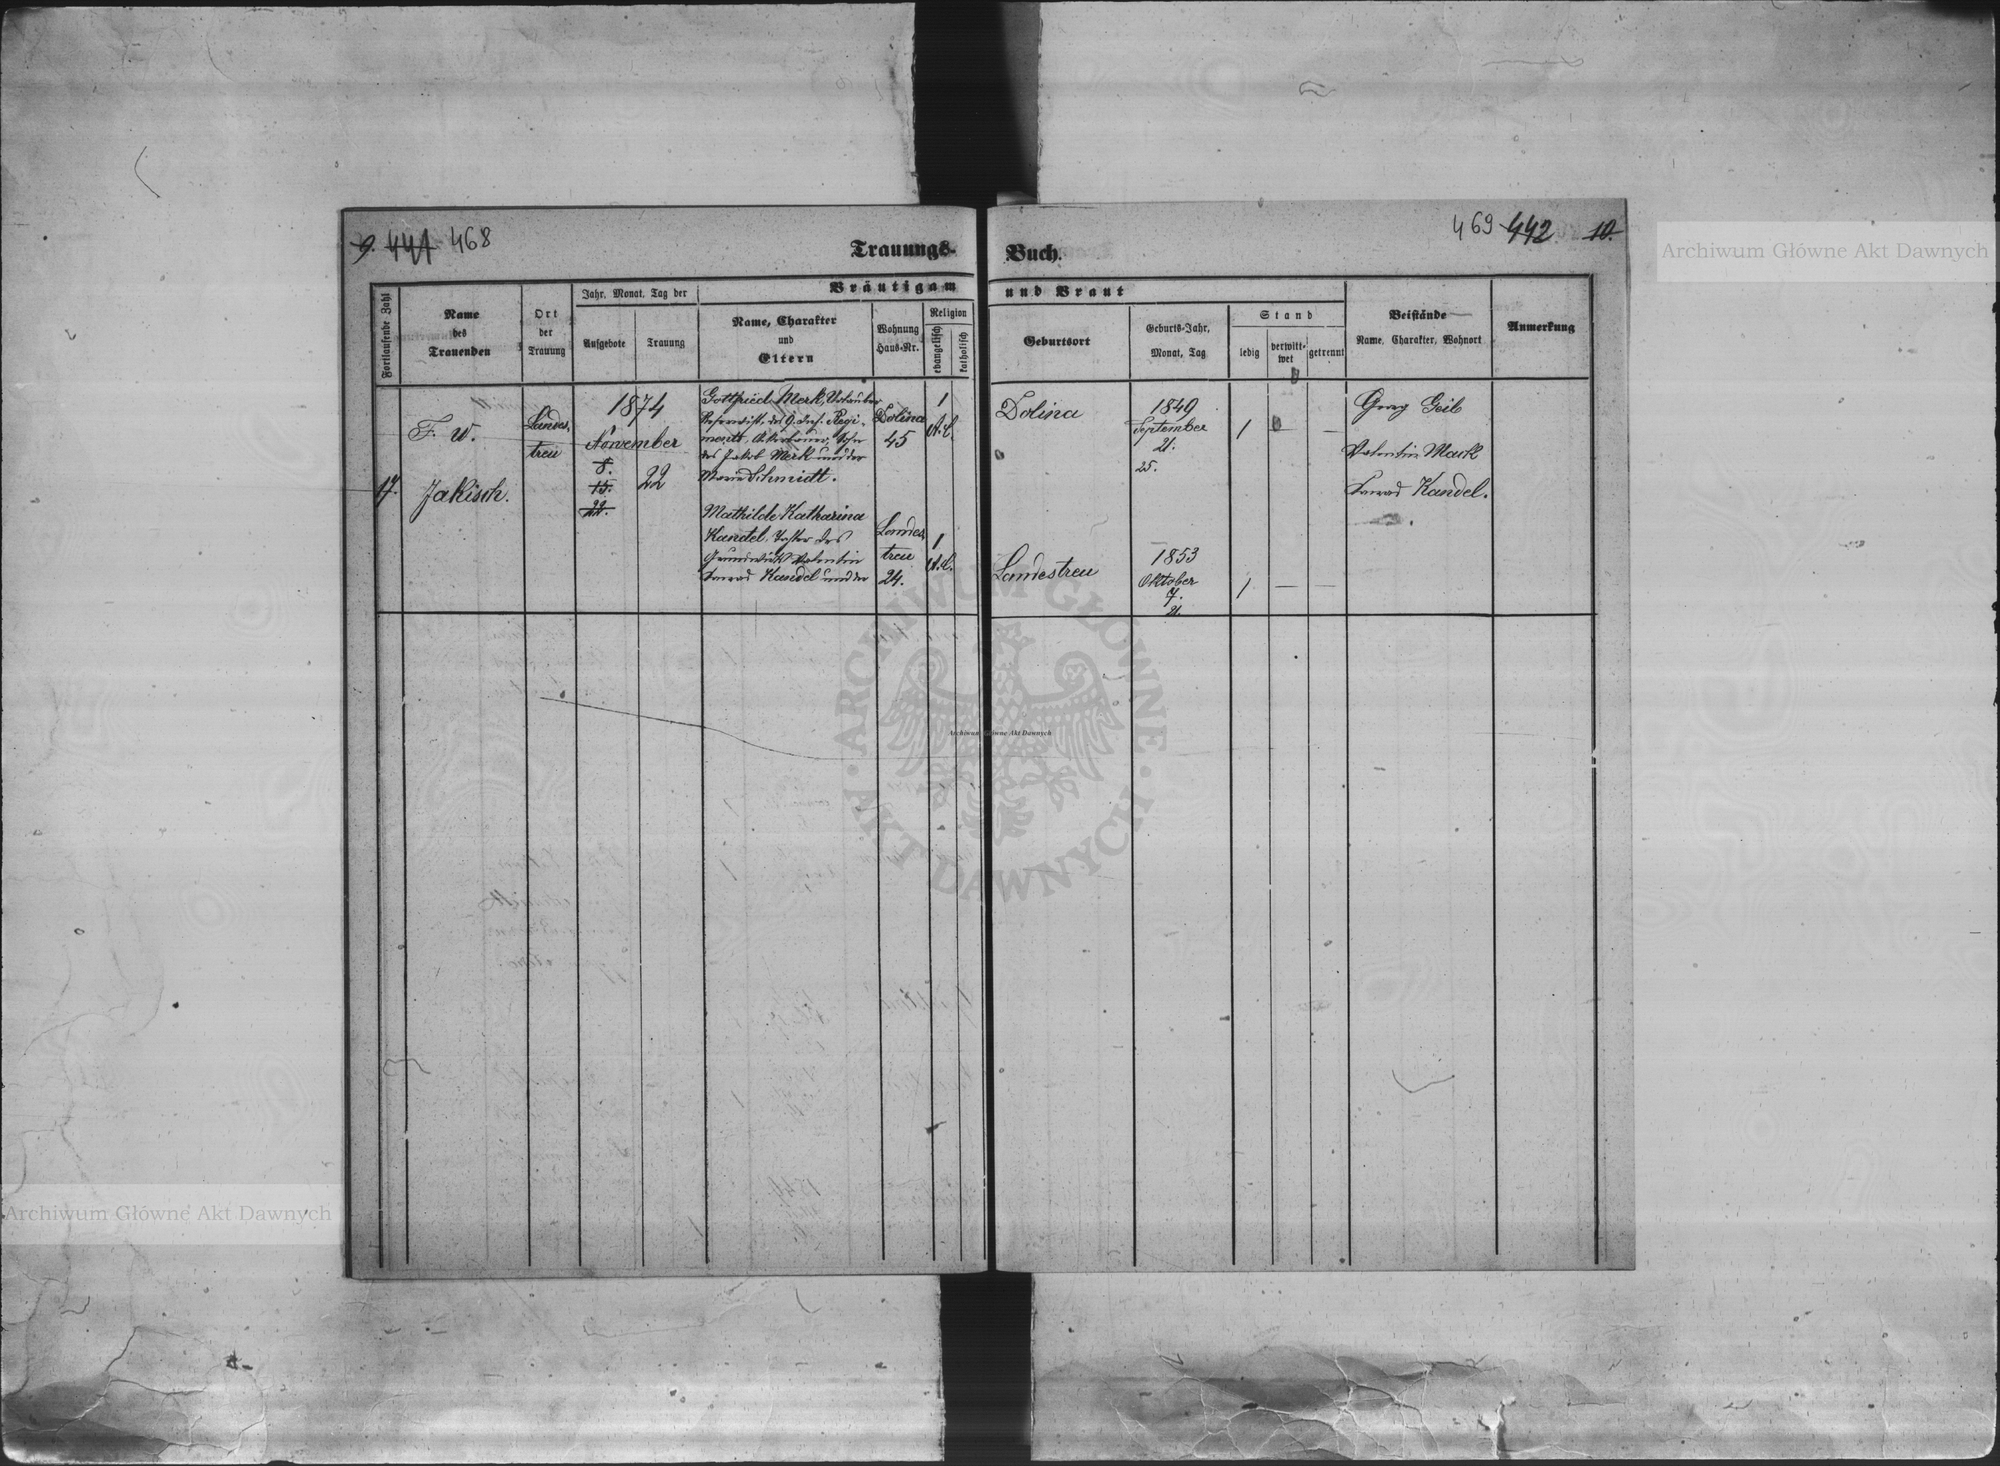 9. 441 468
Trauungs-
Buch.
469 442 10.
Archiwum Główne Akt Dawnych
Fortlaufende Zahl
Name
des
Trauenden
Ort
der
Trauung
Jahr, Monat, Tag der
Aufgebote
Trauung
Bräutigam
und Braut
Name, Charakter
und
Eltern
Wohnung
Haus-Nr.
Religion
evangelisch
katholisch
Geburtsort
Geburts-Jahr,
Monat, Tag
Stand
ledig
verwitt-
wet
getrennt
Beistände
Name, Charakter, Wohnort
Anmerkung
17.
F. W.
Jakisch.
Landes
treu
1874
November
8.
15.
22.
22
Gottfried Merk, Urlauber
Reservist, des 9. Inf. Regi-
ments, Ackerbauer, Sohn
des Jakob Merk und der
Maria Schmidt.
Dolina
45
1
A. C.
Dolina
1849
September
21.
25.
1
Georg Geib
Valentin Mack
Konrad Kandel.
Mathilde Katharina
Kandel, Tochter des
Grundwirths Valentin
Konrad Kandel und der
Landes
treu
24.
1
A. C.
Landestreu
1853
Oktober
7.
21.
1
ARCHIWUM GŁÓWNE · AKT DAWNYCH ·
Archiwum Główne Akt Dawnych
Archiwum Główne Akt Dawnych